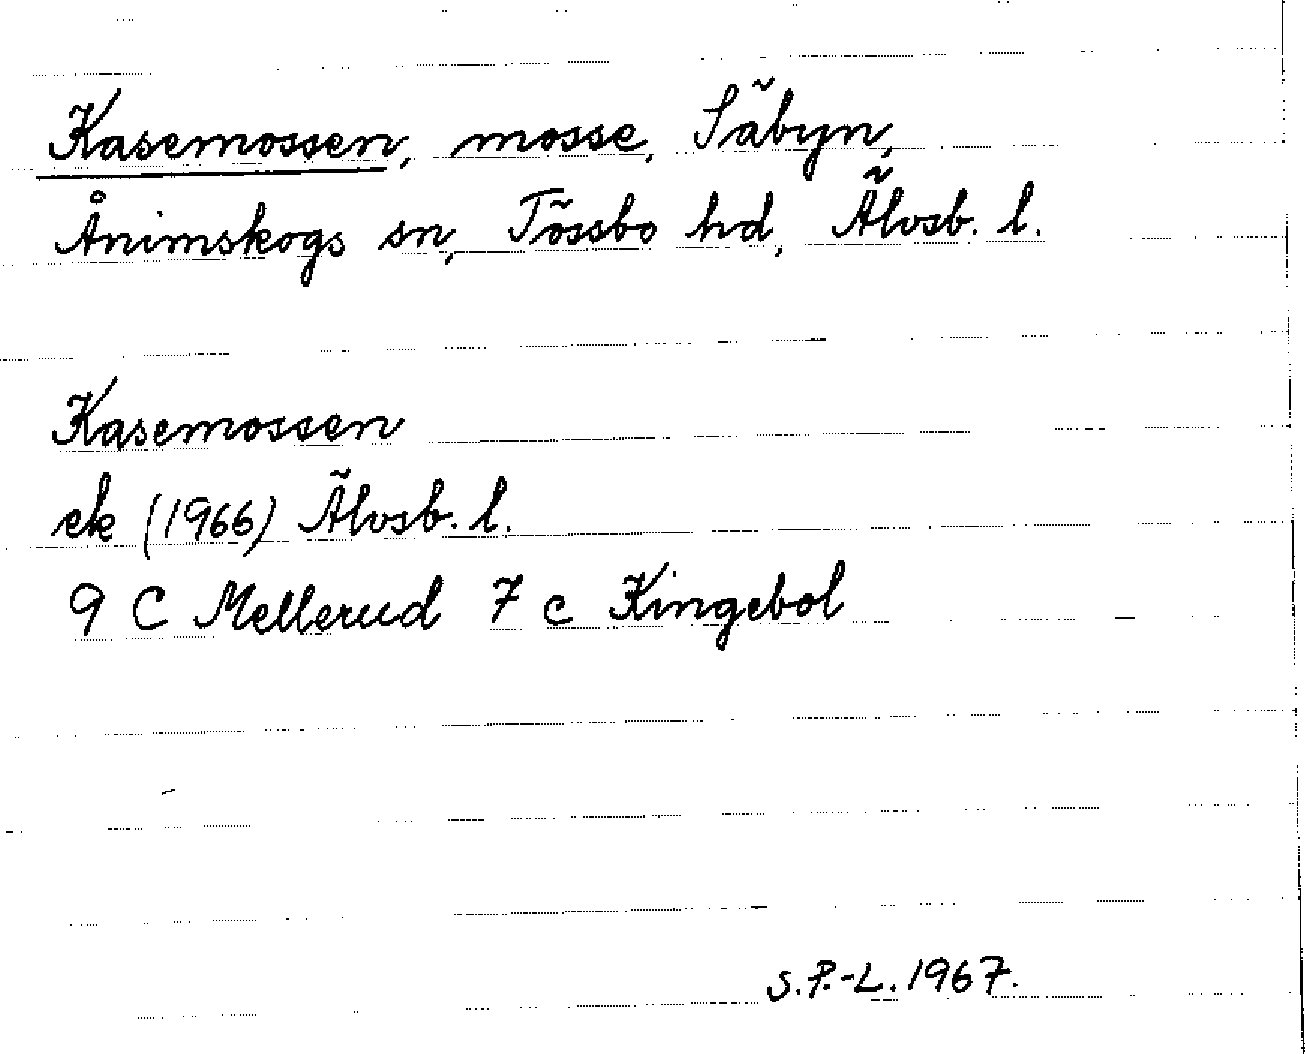 Kasemossen, mosse, Säbyn,
Ånimskogs sn, Tössbo hd, Älvsb. l.
Kasemossen
ek (1966) Älvsb. l.
9 C Mellerud 7 c Kingebol
S.P.-L. 1967.